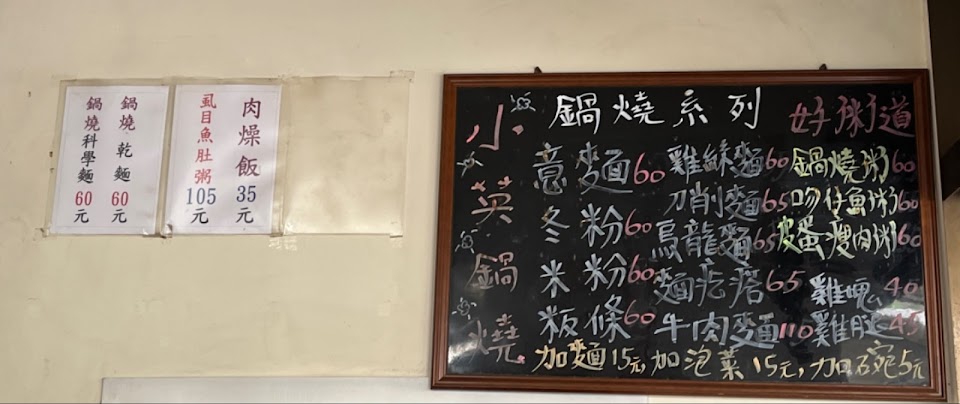 鍋燒乾麵 60元
鍋燒科學麵 60元
肉燥飯 35元
虱目魚肚粥 105元
小英鍋燒
鍋燒系列
意麵60
冬粉60
米粉60
粄條60
雞絲麵60
刀削麵65
烏龍麵65
麵疙瘩65
牛肉麵110
好粥道
鍋燒粥60
吻仔魚粥60
皮蛋瘦肉粥60
雞塊40
雞腿45
加麵15元,加泡菜15元,加碗5元